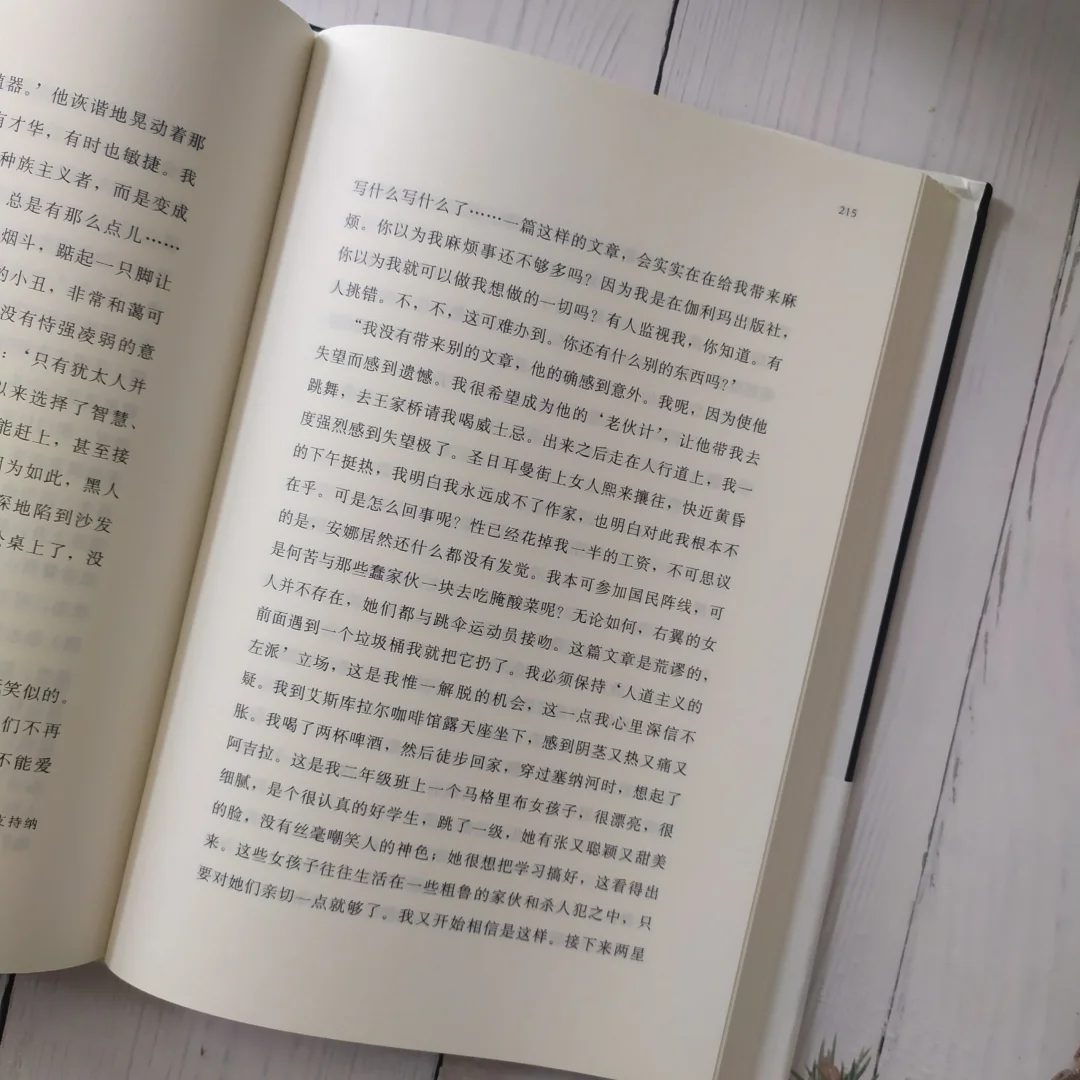 器。’他诙谐地晃动着那
有才华，有时也敏捷。我
种族主义者，而是变成
总是有那么点儿……
烟斗，踮起一只脚让
的小丑，非常和蔼可
没有恃强凌弱的意
：‘只有犹太人并
以来选择了智慧、
能赶上，甚至接
因为如此，黑人
深地陷到沙发
桌上了，没
笑似的。
们不再
不能爱
支持纳
215
写什么写什么了……一篇这样的文章，会实实在在给我带来麻
烦。你以为我麻烦事还不够多吗？因为我是在伽利玛出版社，
你以为我就可以做我想做的一切吗？有人监视我，你知道。有
人挑错。不，不，这可难办到。你还有什么别的东西吗？’
“我没有带来别的文章，他的确感到意外。我呢，因为使他
失望而感到遗憾。我很希望成为他的‘老伙计’，让他带我去
跳舞，去王家桥请我喝威士忌。出来之后走在人行道上，我一
度强烈感到失望极了。圣日耳曼街上女人熙来攘往，快近黄昏
的下午挺热，我明白我永远成不了作家，也明白对此我根本不
在乎。可是怎么回事呢？性已经花掉我一半的工资，不可思议
的是，安娜居然还什么都没有发觉。我本可参加国民阵线，可
是何苦与那些蠢家伙一块去吃腌酸菜呢？无论如何，右翼的女
人并不存在，她们都与跳伞运动员接吻。这篇文章是荒谬的，
前面遇到一个垃圾桶我就把它扔了。我必须保持‘人道主义的
左派’立场，这是我惟一解脱的机会，这一点我心里深信不
疑。我到艾斯库拉尔咖啡馆露天座坐下，感到阴茎又热又痛又
胀。我喝了两杯啤酒，然后徒步回家，穿过塞纳河时，想起了
阿吉拉。这是我二年级班上一个马格里布女孩子，很漂亮，很
细腻，是个很认真的好学生，跳了一级，她有张又聪颖又甜美
的脸，没有丝毫嘲笑人的神色；她很想把学习搞好，这看得出
来。这些女孩子往往生活在一些粗鲁的家伙和杀人犯之中，只
要对她们亲切一点就够了。我又开始相信是这样。接下来两星